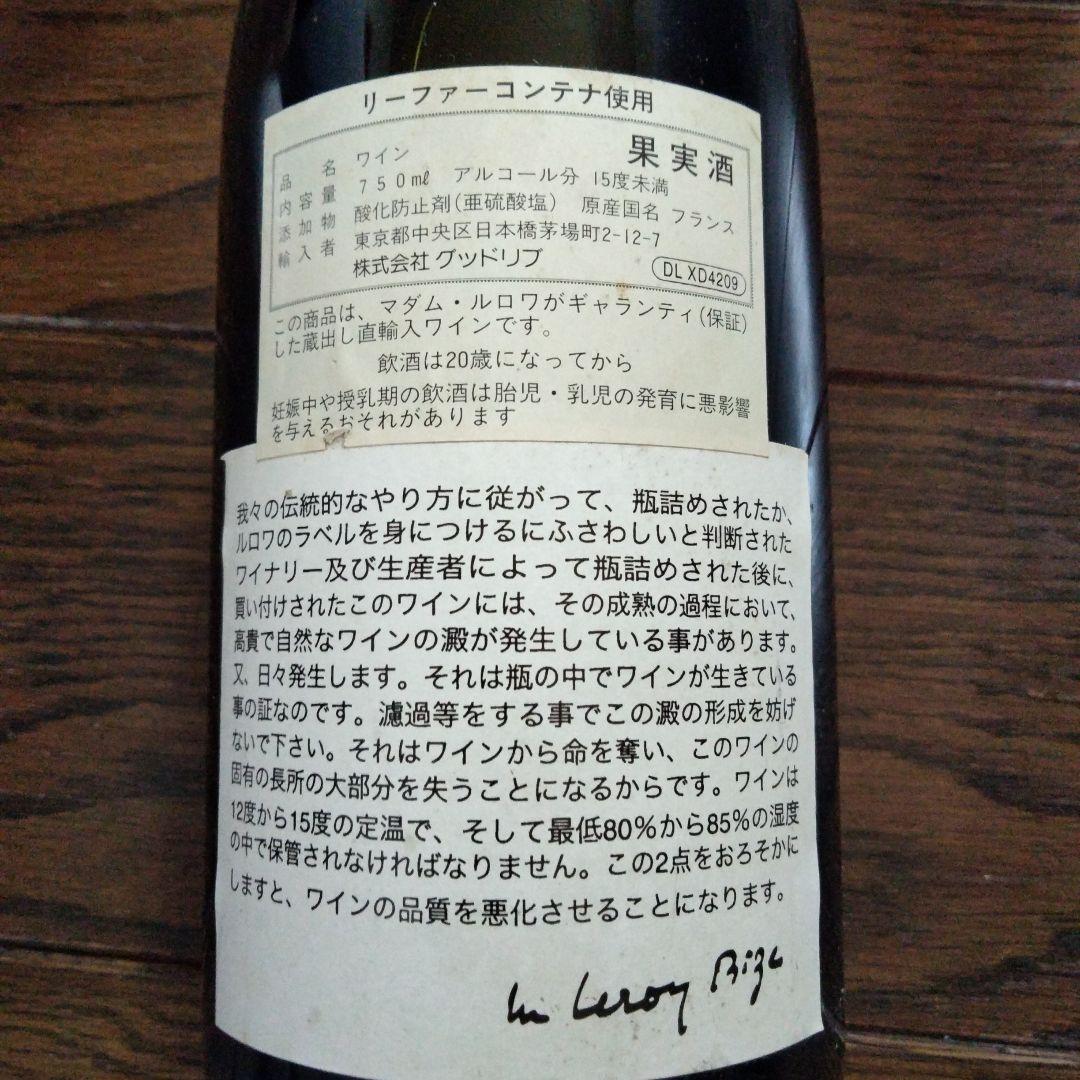 リーファーコンテナ使用
果実酒
品名 ワイン
内容量 750mℓ アルコール分 15度未満
添加物 酸化防止剤(亜硫酸塩) 原産国名 フランス
輸入者 東京都中央区日本橋茅場町2-12-7
株式会社 グッドリブ
DL XD4209
この商品は、マダム・ルロワがギャランティ(保証)
した蔵出し直輸入ワインです。
飲酒は20歳になってから
妊娠中や授乳期の飲酒は胎児・乳児の発育に悪影響
を与えるおそれがあります
我々の伝統的なやり方に従がって、瓶詰めされたか、
ルロワのラベルを身につけるにふさわしいと判断された
ワイナリー及び生産者によって瓶詰めされた後に、
買い付けされたこのワインには、その成熟の過程において、
高貴で自然なワインの澱が発生している事があります。
又、日々発生します。それは瓶の中でワインが生きている
事の証なのです。濾過等をする事でこの澱の形成を妨げ
ないで下さい。それはワインから命を奪い、このワインの
固有の長所の大部分を失うことになるからです。ワインは
12度から15度の定温で、そして最低80%から85%の湿度
の中で保管されなければなりません。この2点をおろそかに
しますと、ワインの品質を悪化させることになります。
Leroy Bize